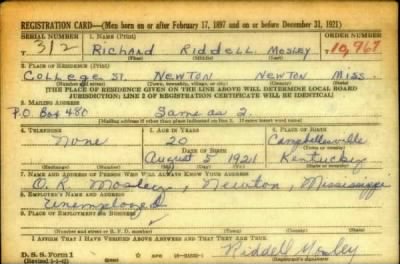 REGISTRATION CARD—(Men born on or after February 17, 1897 and on or before December 31, 1921)
SERIAL NUMBER 1. NAME (Print) ORDER NUMBER
T 312 Richard Riddell Mosley T 10,967
(First) (Middle) (Last)
2. PLACE OF RESIDENCE (Print)
College St. Newton Newton Miss.
(Number and street) (Town, township, village, or city) (County) (State)
[THE PLACE OF RESIDENCE GIVEN ON THE LINE ABOVE WILL DETERMINE LOCAL BOARD
JURISDICTION; LINE 2 OF REGISTRATION CERTIFICATE WILL BE IDENTICAL]
3. MAILING ADDRESS
P.O. Box 480 Same as 2.
[Mailing address if other than place indicated on line 2. If same insert word same]
4. TELEPHONE 5. AGE IN YEARS 6. PLACE OF BIRTH
None 20 Campbellsville
DATE OF BIRTH (Town or county)
August 5 1921 Kentucky
(Exchange) (Number) (Mo.) (Day) (Yr.) (State or country)
7. NAME AND ADDRESS OF PERSON WHO WILL ALWAYS KNOW YOUR ADDRESS
O. R. Mosley, Newton, Mississippi
8. EMPLOYER'S NAME AND ADDRESS
Unemployed
9. PLACE OF EMPLOYMENT OR BUSINESS
(Number and street or R. F. D. number) (Town) (County) (State)
I AFFIRM THAT I HAVE VERIFIED ABOVE ANSWERS AND THAT THEY ARE TRUE.
Riddell Mosley
D. S. S. Form 1 (Registrant's signature)